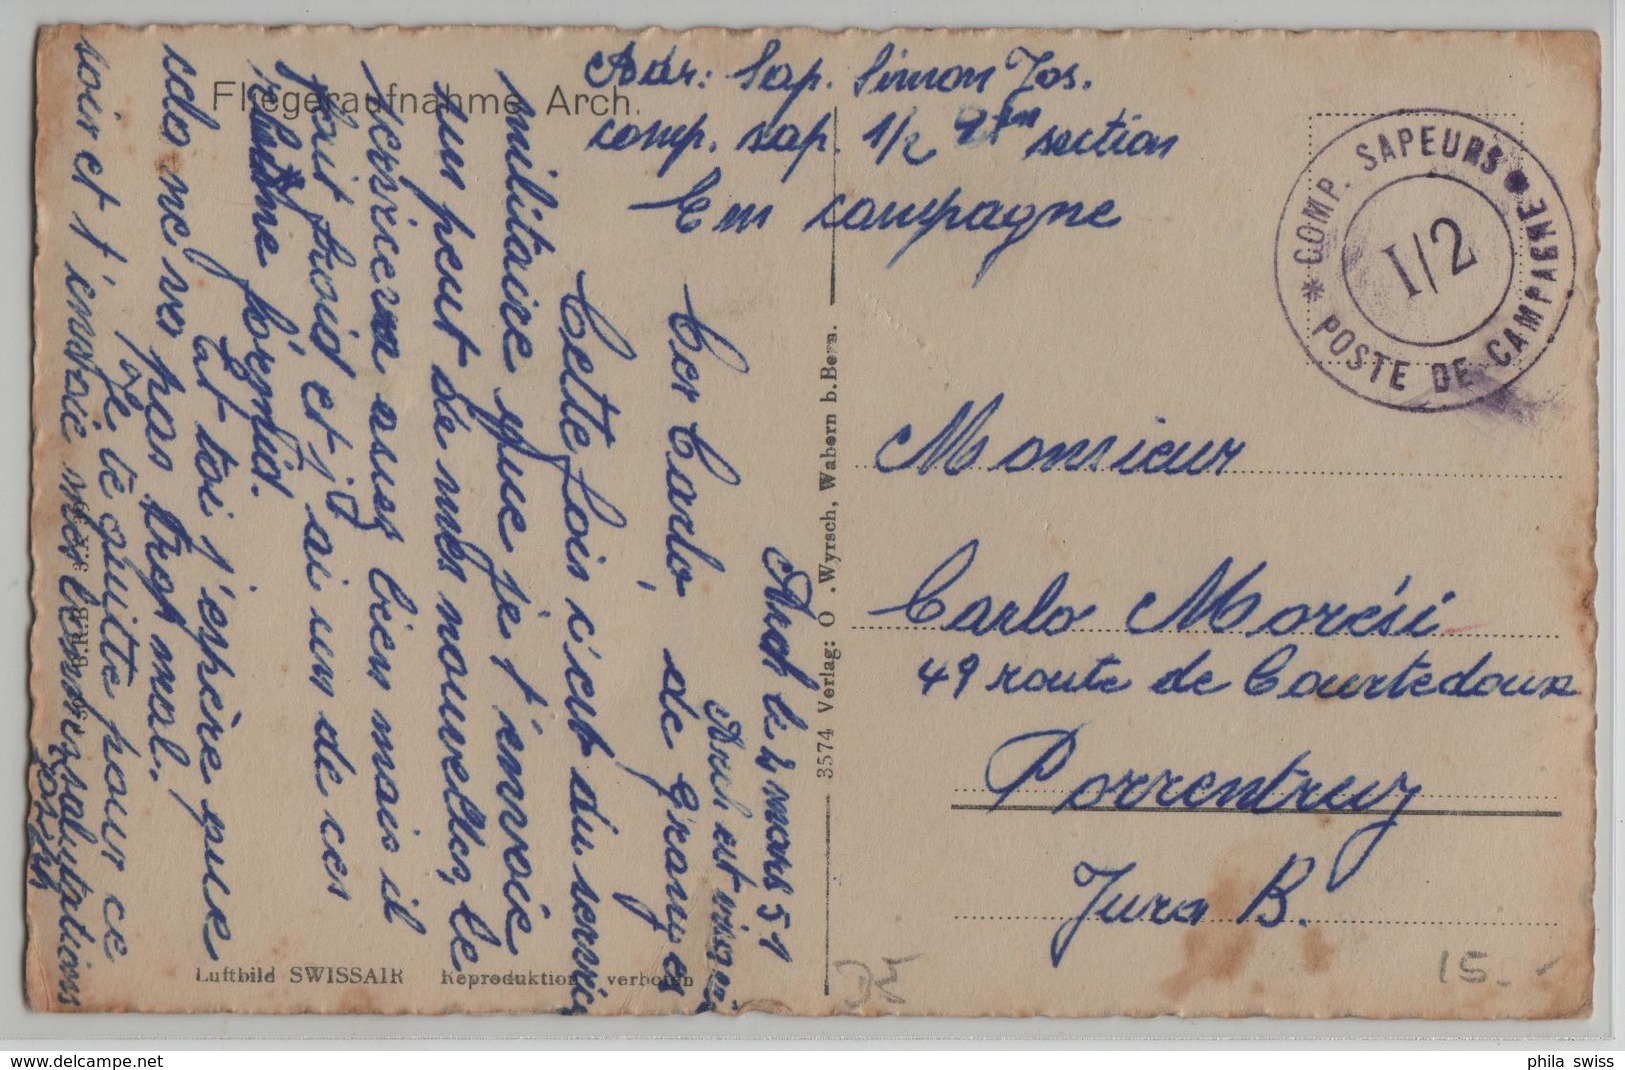 Fliegeraufnahme Arch.
Adr: Sap. Simon Jos.
comp. sap. 1/2 2em section
En campagne
COMP. SAPEURS
I/2
POSTE DE CAMPAGNE
Arch le 2 mars 51
Cer Carlo
Cette fois c'est du service
militaire que je t'envoie
un peut de mes nouvelles, le
service va assez bien mais il
fait froid et j'ai un de ces
rhume förmid.
Et toi j'espère que
cela ne va pas trop mal.
Je te quitte pour ce
soir et t'envoie mes salutations
Joseph
Arch est
de Granges
Monsieur
Carlo Morési
49 route de Courtedoux
Porrentruy
Jura B.
3574 Verlag: O. Wyrsch, Wabern b. Bern.
Luftbild SWISSAIR Reproduktion verboten
15.-
www.delcampe.net
phila swiss